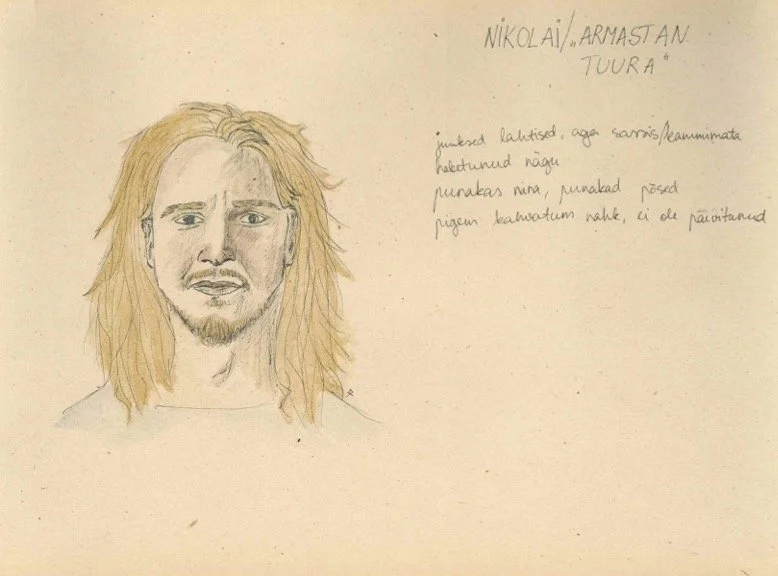 NIKOLAI/„ARMASTAN
TUURA"
juuksed lahtised, aga sassis/kammimata
habetunud nägu
punakas nina, punakad põsed
pigem kahvatum nahk, ei ole päevitunud